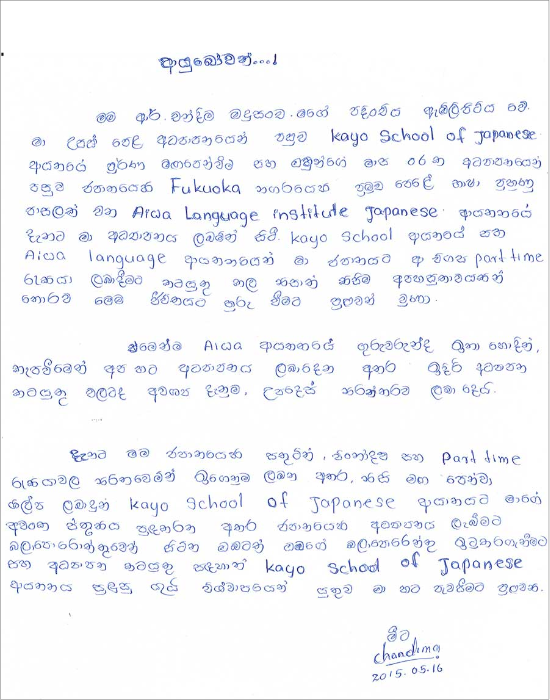 ආයුබෝවන්...!
මම ආර්. චන්දිම මධුසංඛ. මගේ පදිංචිය ඇඹිලිපිටිය වේ.
මා උසස් පෙළ අධ්‍යාපනයෙන් පසුව kayo School of Japanese
ආයතනයේ පූර්ණ මඟපෙන්වීම සහ ඔවුන්ගේ මාස 0 න අධ්‍යාපනයෙන්
පසුව ජපානයෙහි Fukuoka නගරයෙහි ප්‍රමුඛ පෙළේ භාෂා පුහුණු
පාසලක් වන Aiwa Language institute Japanese ආයතනයේ
දැනට මා අධ්‍යාපනය ලබමින් සිටී. kayo School ආයතනයේ සහ
Aiwa language ආයතනයෙන් මා ජපානයට ආ විගස part time
රැකියා ලබාදීමට කටයුතු කල හෙයින් කිසිම අපහසුතාවයකින්
තොරව මෙම ජීවිතයට හුරු වීමට පුලුවන් වුණා.
එමෙන්ම Aiwa ආයතනයේ ගුරුවරුන්ද ඉතා හොඳින්,
කැපවීමෙන් අප හට අධ්‍යාපනය ලබාදෙන අතර ඉදිරි අධ්‍යාපන
කටයුතු වලටද අවශ්‍ය දැනුම, උපදෙස් නිරන්තරව ලබා දෙයි.
දැනට මම ජපානයෙහි සතුටින්, විනෝදව සහ Part time
රැකියාවල නිරතවෙමින් ඉගෙනුම ලබන අතර, නිසි මඟ පෙන්වා,
ශිල්ප ලබාදුන් kayo School of Japanese ආයතනයට මාගේ
අවංක ස්තූතිය පුදකරන අතර ජපානයෙහි අධ්‍යාපනය ලැබීමට
බලාපොරොත්තුවෙන් සිටින ඔබටත් ඔබගේ බලාපොරොත්තු ඉටුකරගැනීමට
සහ අධ්‍යාපන කටයුතු සඳහාත් kayo School of Japanese
ආයතනය සුදුසු යැයි විශ්වාසයෙන් යුතුව මා හට පැවසීමට පුලුවන.
මීට
chandima
2015.05.16